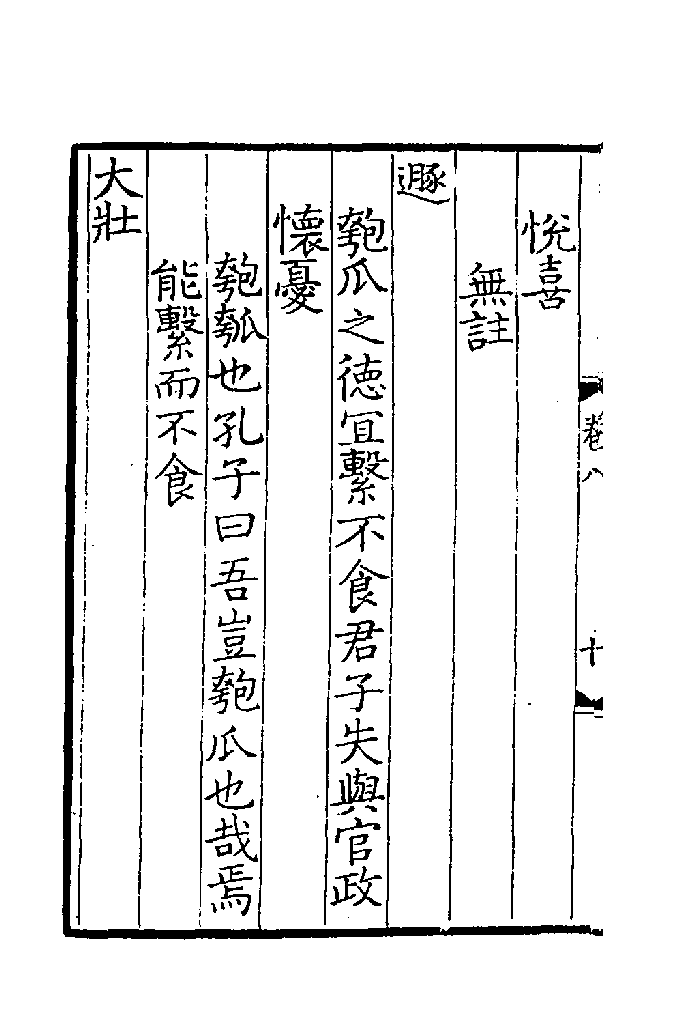 悅喜
無註
遯
匏瓜之徳宜繫不食君子失輿官政
懷憂
匏瓠也孔子曰吾豈匏瓜也哉焉
能繫而不食
大壯
卷八
十